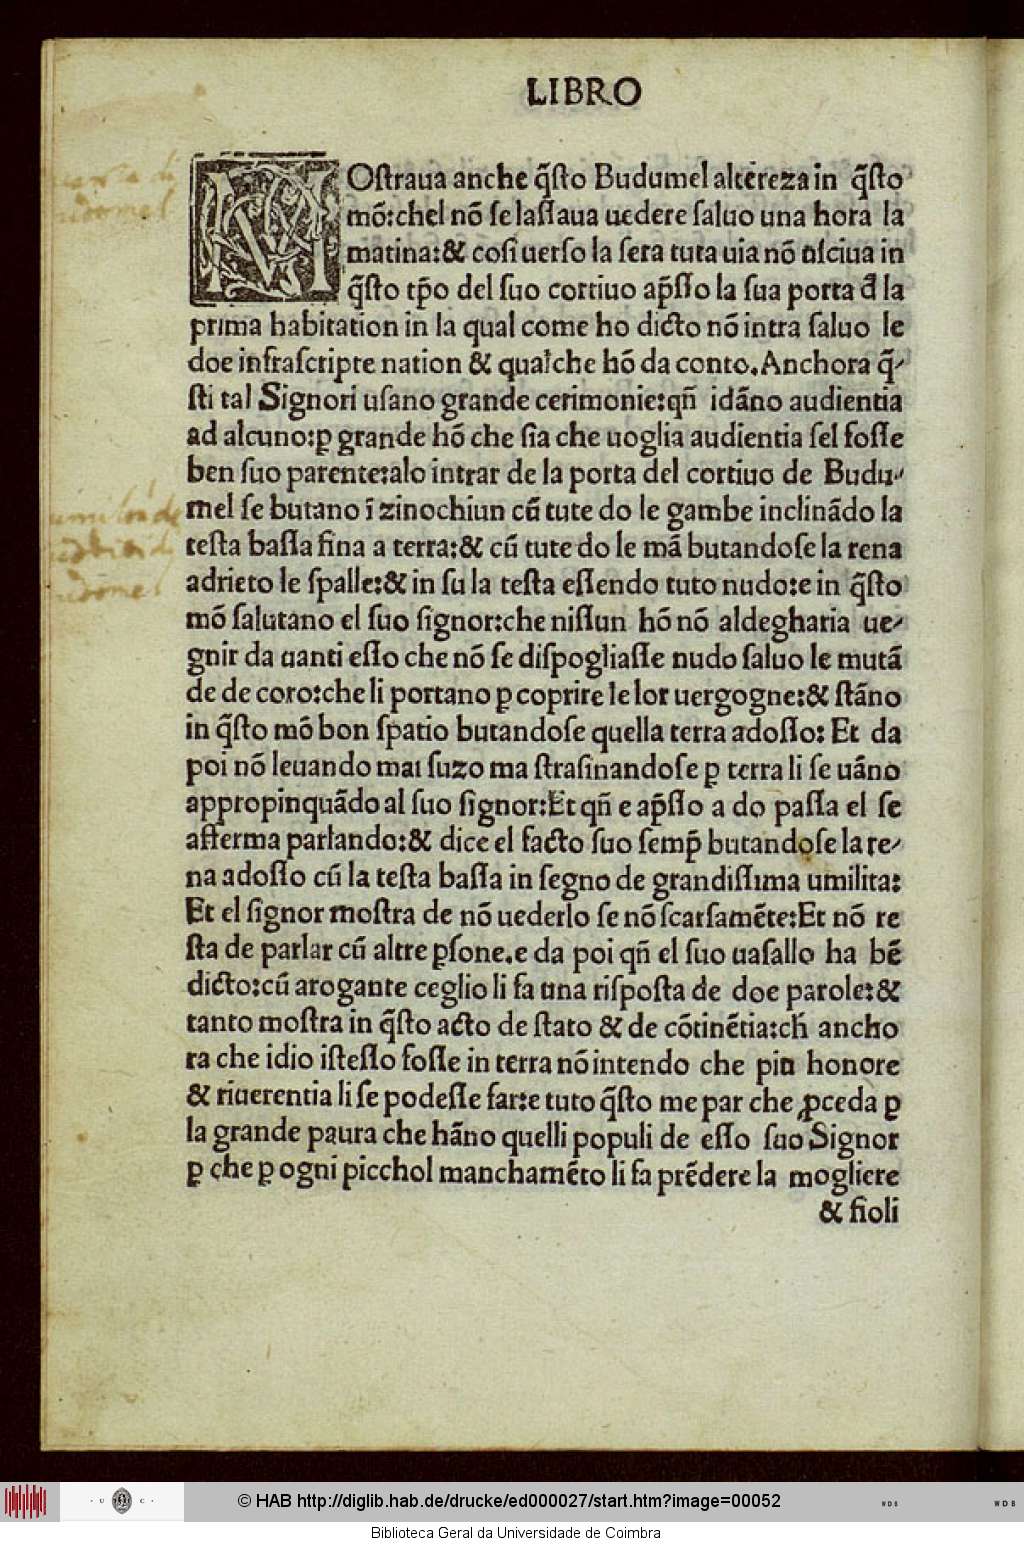 LIBRO
MOstraua anche q̃sto Budumel altereza in q̃sto
mõ:chel nõ se lassaua uedere saluo una hora la
matina:& cosi uerso la sera tuta uia nõ usciua in
q̃sto tp̃o del suo cortiuo ap̃sso la sua porta đ la
prima habitation in la qual come ho dicto nõ intra saluo le
doe infrascripte nation & qualche hõ da conto.Anchora q̃-
sti tal Signori usano grande cerimonie:qñ idãno audientia
ad alcuno:ꝑ grande hõ che sia che uoglia audientia sel fosse
ben suo parente:alo intrar de la porta del cortiuo de Budu-
mel se butano ĩ zinochiun cũ tute do le gambe inclinãdo la
testa bassa fina a terra:& cũ tute do le mã butandose la rena
adrieto le spalle:& in su la testa essendo tuto nudo:e in q̃sto
mõ salutano el suo signor:che nissun hõ nõ aldegharia ue-
gnir da uanti esso che nõ se dispogliasse nudo saluo le mutã
de de coro:che li portano ꝑ coprire le lor uergogne:& stãno
in q̃sto mõ bon spatio butandose quella terra adosso: Et da
poi nõ leuando mai suzo ma strasinandose ꝑ terra li se uãno
appropinquãdo al suo signor:Et qñ e ap̃sso a do passa el se
afferma parlando:& dice el facto suo semp̃ butandose la re-
na adosso cũ la testa bassa in segno de grandissima umilita:
Et el signor mostra de nõ uederlo se nõ scarsamẽte:Et nõ re
sta de parlar cũ altre ꝑsone.e da poi qñ el suo uasallo ha bẽ
dicto:cũ arogante ceglio li fa una risposta de doe parole:&
tanto mostra in q̃sto acto de stato & de cõtinẽtia:cħ ancho
ra che idio istesso fosse in terra nõ intendo che piu honore
& riuerentia li se podesse far:e tuto q̃sto me par che ꝓceda ꝑ
la grande paura che hãno quelli populi de esso suo Signor
ꝑ che ꝑ ogni picchol manchamẽto li fa prẽdere la mogliere
& fioli
· U C ·
© HAB http://diglib.hab.de/drucke/ed000027/start.htm?image=00052
WDB
WDB
Biblioteca Geral da Universidade de Coimbra